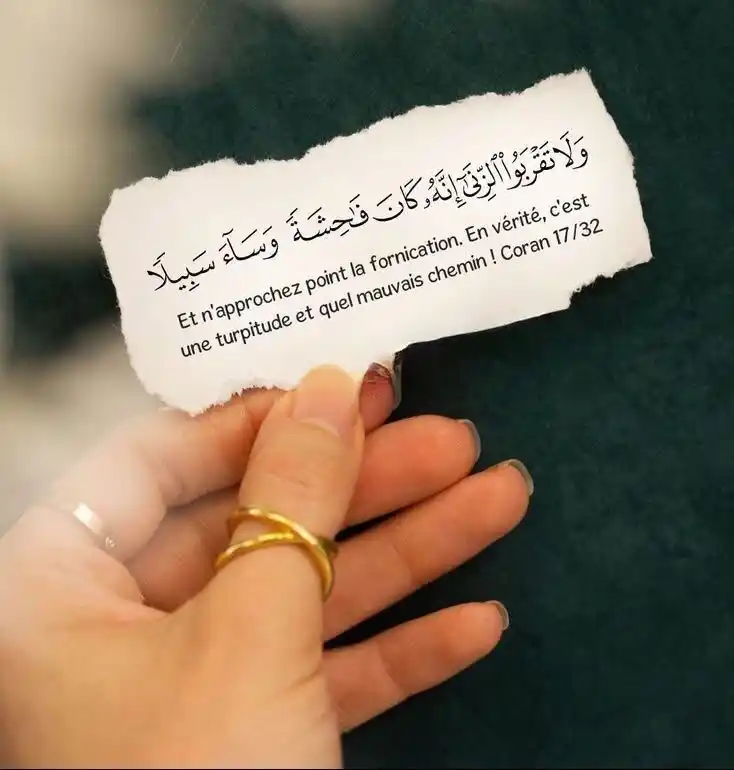 وَلَا تَقْرَبُوا۟ ٱلزِّنَىٰٓ إِنَّهُۥ كَانَ فَـٰحِشَةً وَسَآءَ سَبِيلًا
Et n'approchez point la fornication. En vérité, c'est
une turpitude et quel mauvais chemin ! Coran 17/32